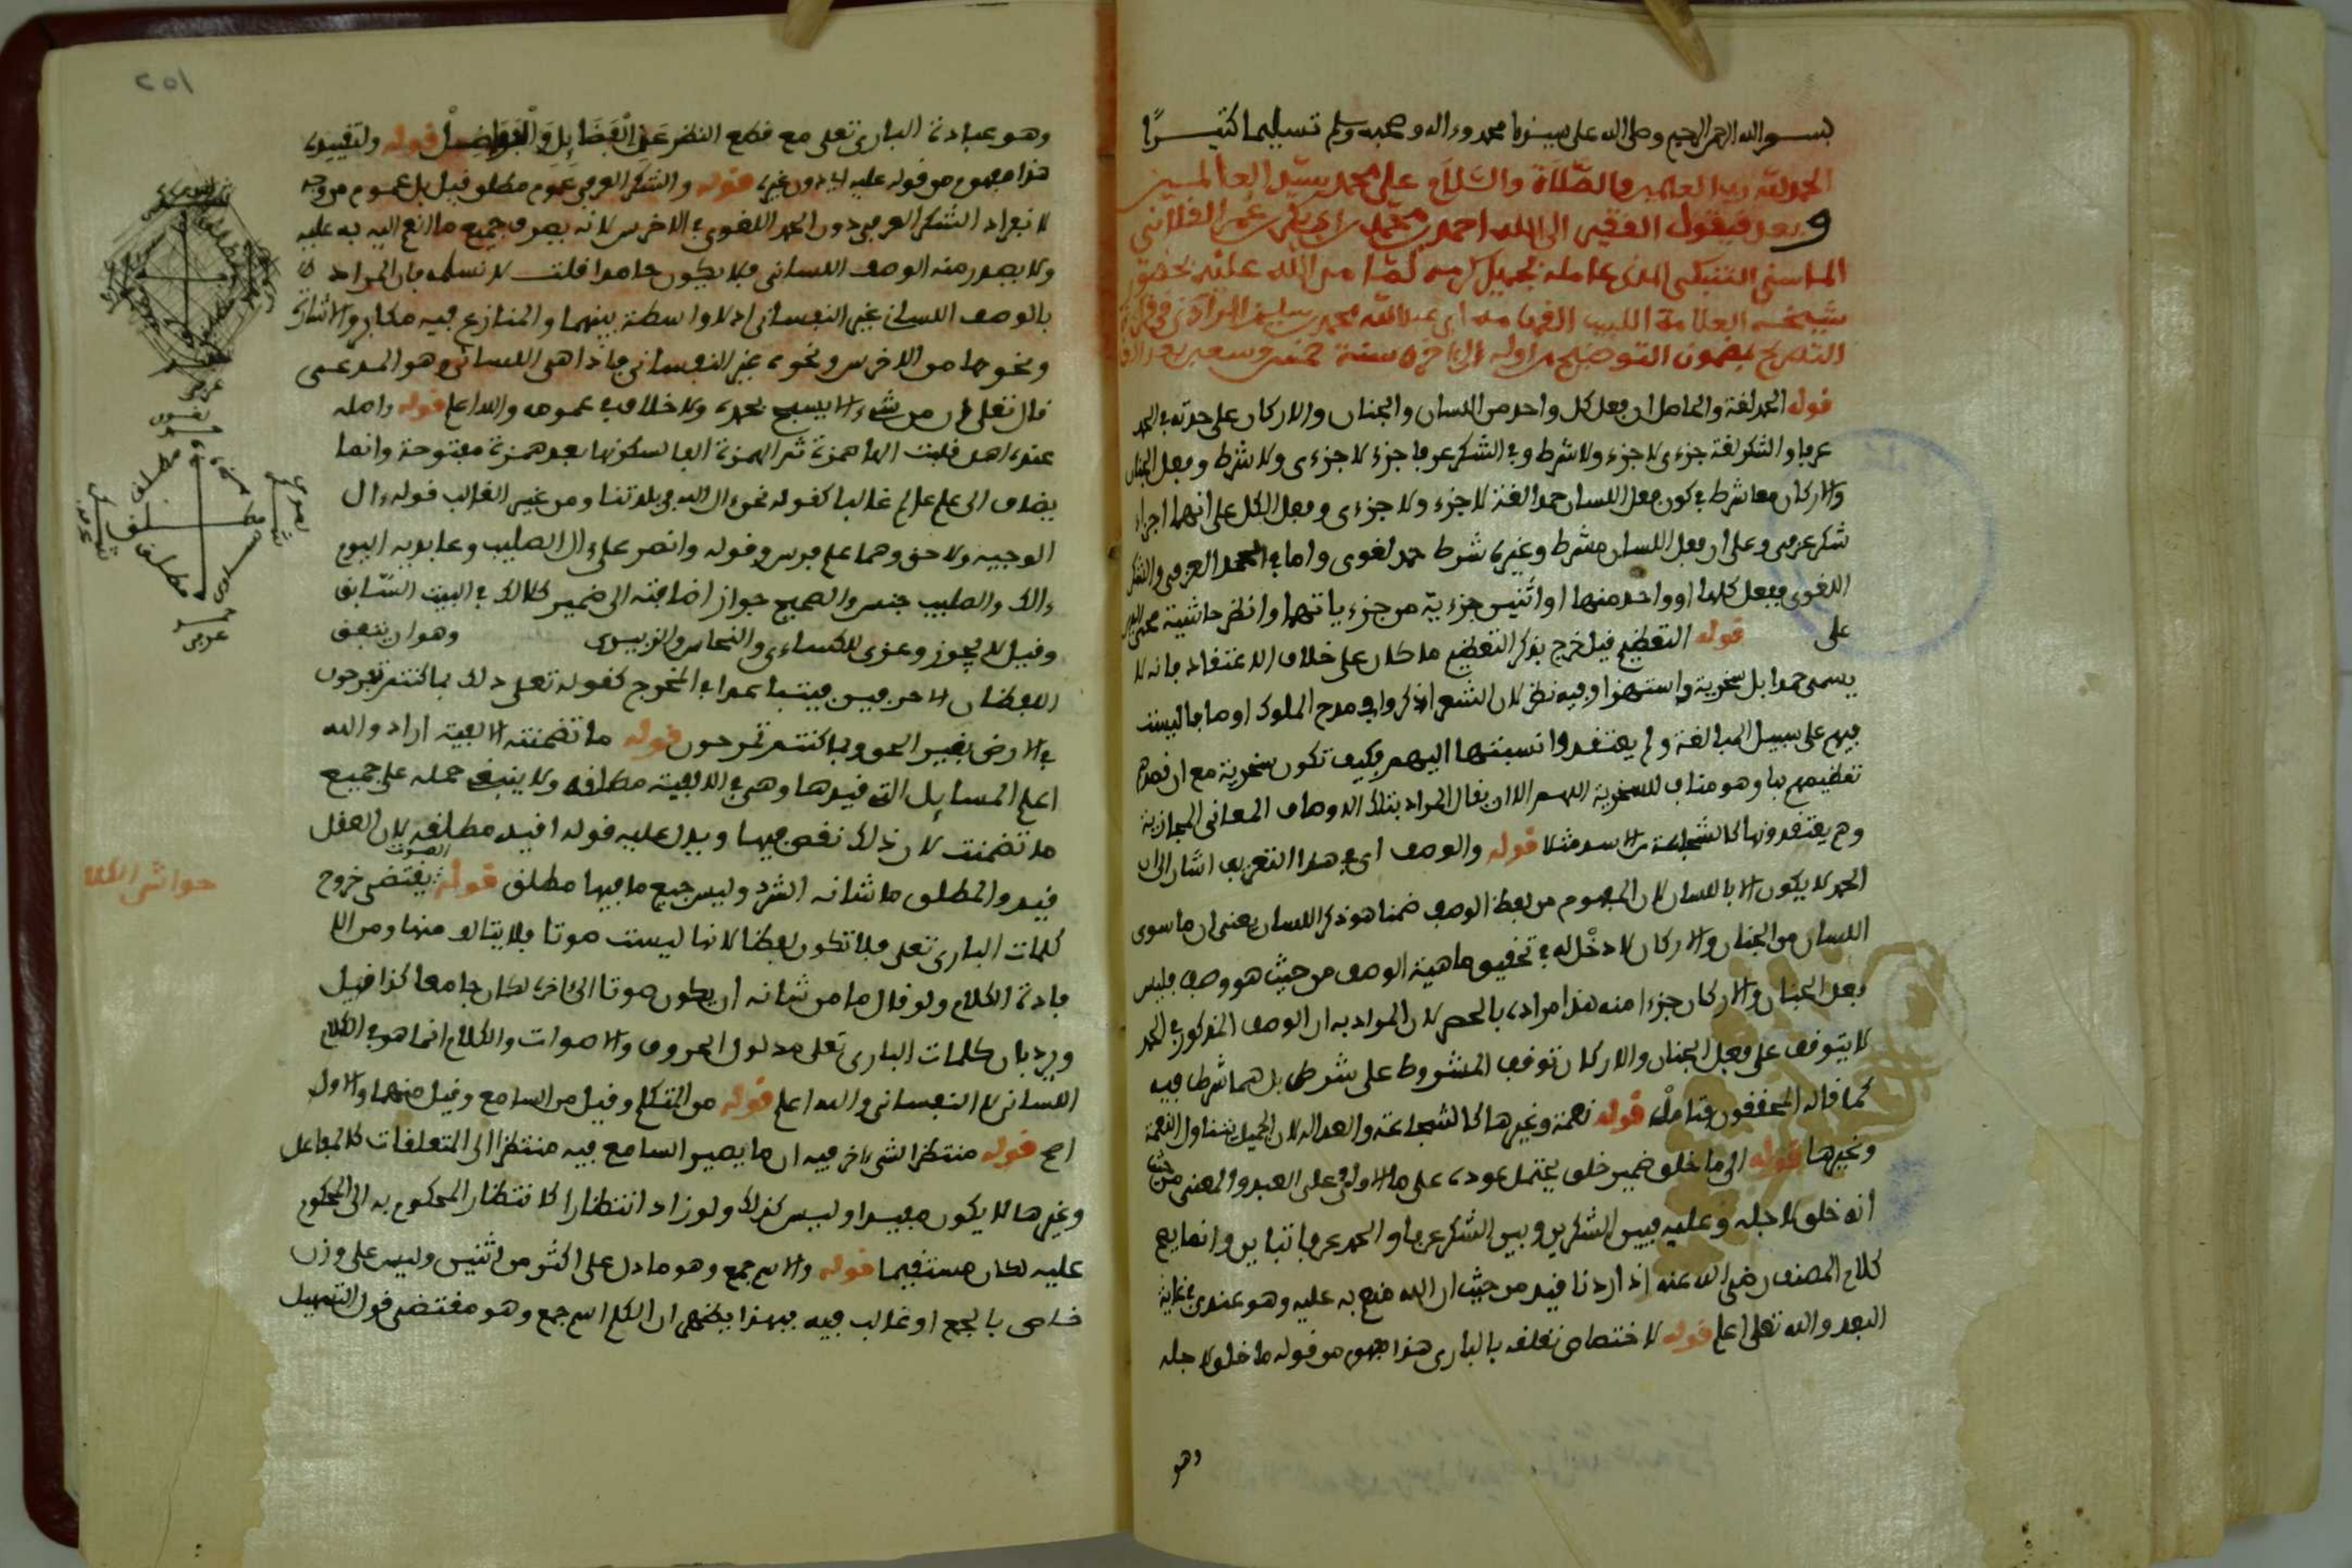 بسم الله الرحمن الرحيم وصلى الله على سيدنا محمد وءاله وصحبه وسلم تسليما كثيرًا
الحمد لله رب العلمين والصّلاَة والسَّلاَم على محمد سيّد العالمين
وبعد فيقول الفقير الى الله احمد بن محمد بن
التصريح بمضمون التوضيح من اوله الى ءاخره سنة خمس وسبعين بعد
قوله الحمد لغة والحاصل ان فعل كل واحد من اللسان والجنان والاركان على حدته في الحمد
عرفا والشكر لغة جزءى لا جزء ولا شرط وفي الشكر عرفا جزء لا جزءى ولا شرط وفعل الجنان
والاركان معا شرط في كون فعل اللسان حمدا لغة لا جزء ولا جزءى وفعل الكل على انهما اجزاء
شكر عرفى وعلى ان فعل اللسان مشرط وغيره شرط حمد لغوى واما في الحمد العرفى والشكر
اللغوى ففعل كلها او واحد منها او اثنين جزءية من جزءياتهما وانظر حاشية
على قوله التعظيم قيل خرج بذكر التعظيم ما كان على خلاف الاعتقاد فانه لا
يسمى حمدا بل سخرية واستهزا وفيه نظر لان الشعرا ذكروا في مدح الملوك اوصافا ليست
فيهم على سبيل المبالغة ولم يعتقدوا نسبتها اليهم فكيف تكون سخرية مع ان قصدهم
تعظيمهم بها وهو مناف للسخرية اللهم الا ان يقال المراد بتلك الاوصاف المعانى المجازية
وهم يعتقدونها كالشجاعة من الاسد مثلا قوله والوصف اى في هذا التعريف اشار الى ان
الحمد لا يكون الا باللسان لان المفهوم من لفظ الوصف ضمنا هو ذكر اللسان يعنى ان ما سوى
اللسان من الجنان والاركان لا دخْل له في تحقيق ماهية الوصف من حيث هو وصف فليس
فعل الجنان والاركان جزءا منه هذا مراده بالحصر لان المراد به ان الوصف المذكور في الحمد
لا يتوقف على فعل الجنان والاركان توقف المشروط على شرطه بل هما شرط فيه
كما قاله المحققون فتامله قوله نعمة وغيرها كالشجاعة والعدالة لان الجميل يتناول النعمة
وغيرها قوله الى ما خلق ضمير خلق يحتمل عوده على ما الاولى وعلى العبد والمعنى من حيث
انه خلق لاجله وعليه فبين الشكرين وبين الشكر عرفا والحمد عرفا تباين وانما يصح
كلام المصنف رضى الله عنه اذا اردنا قيد من حيث ان الله منعم به عليه وهو عندى في غاية
البعد والله تعلى اعلم قوله لاختصاص تعلقه بالبارى هذا مفهوم من قوله ما خلق لاجله
وهو
٢٥١
وهو عبادة البارى تعلى مع قطع النظر عَنِ الْفَضَائِلِ وَالْفَوَاضِلْ قوله ولتقييده
هذا مفهوم من قوله عليه اى دون غيره قوله والشكر العرفى عموم مطلق قيل بل عموم من وجه
لانفراد الشكر العرفى دون الحمد اللغوى في الاخرس لانه يصرف جميع ما انعم اليه به عليه
ولا يصدر منه الوصف اللسانى فلا يكون حامدا قلت لا نسلمه فان المراد
بالوصف اللسانى غير النفسانى اذ لا واسطة بينهما والمنازع فيه مكابر والاشارة
ونحوها من الاخرس ونحوه غير النفسانى فاذا هى اللسانى وهو المدعى
قال تعلى وان من شىء الا يسبح بحمده ولا خلاف في عمومه والله اعلم قوله واصله
عنده اهل قلبت الها همزة ثم الهمزة الفا لسكونها بعد همزة مفتوحة وانما
يضاف الى علم عالم غالبا كقوله نحن ءال الله في بلدتنا ومن غير الغالب قوله ءال
الوجيه ولاحق وهما علم فرس وقوله وانصر على ءال الصليب وعابديه اليوم
ءالك والصليب جنس والصحيح جواز اضافته الى ضمير كالك في البيت السّابق
وقيل لا يجوز وعزى للكساءى والنحاس والزبيدى وهو ان يتفق
اللفظان الا حرفين فيتباعدا في المخرج كقوله تعلى ذلك بما كنتم تفرحون
في الارض بغير الحق وبما كنتم تمرحون قوله ما تضمنته الالفية اراد والله
اعلم المسايل التى قيدها وهى في الالفية مطلقه ولا ينبغى حمله على جميع
ما تضمنت لان ذلك نقص فيها ويدل عليه قوله اقيد مطلقه لان العقل
قيد والمطلق ما شانه الشرد وليس جميع ما فيها مطلق قوله الصوت يقتضى خروج
كلمات البارى تعلى فلا تكون لفظا لانها ليست صوتا فلا يتالف منها ومن الا
فادة الكلام ولو قال ما من شانه ان يكون صوتا الى ءاخره لكان جامعا كذا قيل
ورد بان كلمات البارى تعلى مدلول الحروف والاصوات والكلام انما هو في الكلام
اللسانى لا النفسانى والله اعلم قوله من المتكلم وقيل من السامع وقيل منهما والاول
اصح قوله منتظرا لشىء ءاخر فيه ان ما يصير السامع فيه منتظرا الى المتعلقات كالمفاعل
وغيرها لا يكون مفيدا وليس كذلك ولو زاد انتظارا كانتظار المحكوم به الى المحكوم
عليه لكان مستقيما قوله والاسم جمع وهو ما دل على اكثر من اثنين وليس على وزن
خاص بالجمع او غالب فيه فبهذا يظهر ان الكلم اسم جمع وهو مقتضى قول التسهيل
حمد
مطلق
مطلق
شكر
حمد
عرفى